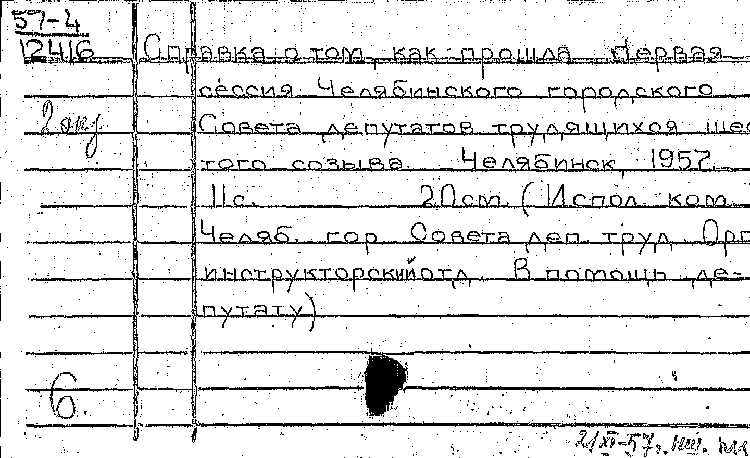 57-4
12416
Справка о том, как прошла первая
сессия Челябинского городского
2 экз
Совета депутатов трудящихся шес
того созыва. Челябинск, 1957.
11с. 20см. (Испол. ком.
Челяб. гор. Совета деп. труд. Орг.
инструкторский отд. В помощь де-
путату)
6.
2/XI-57г.